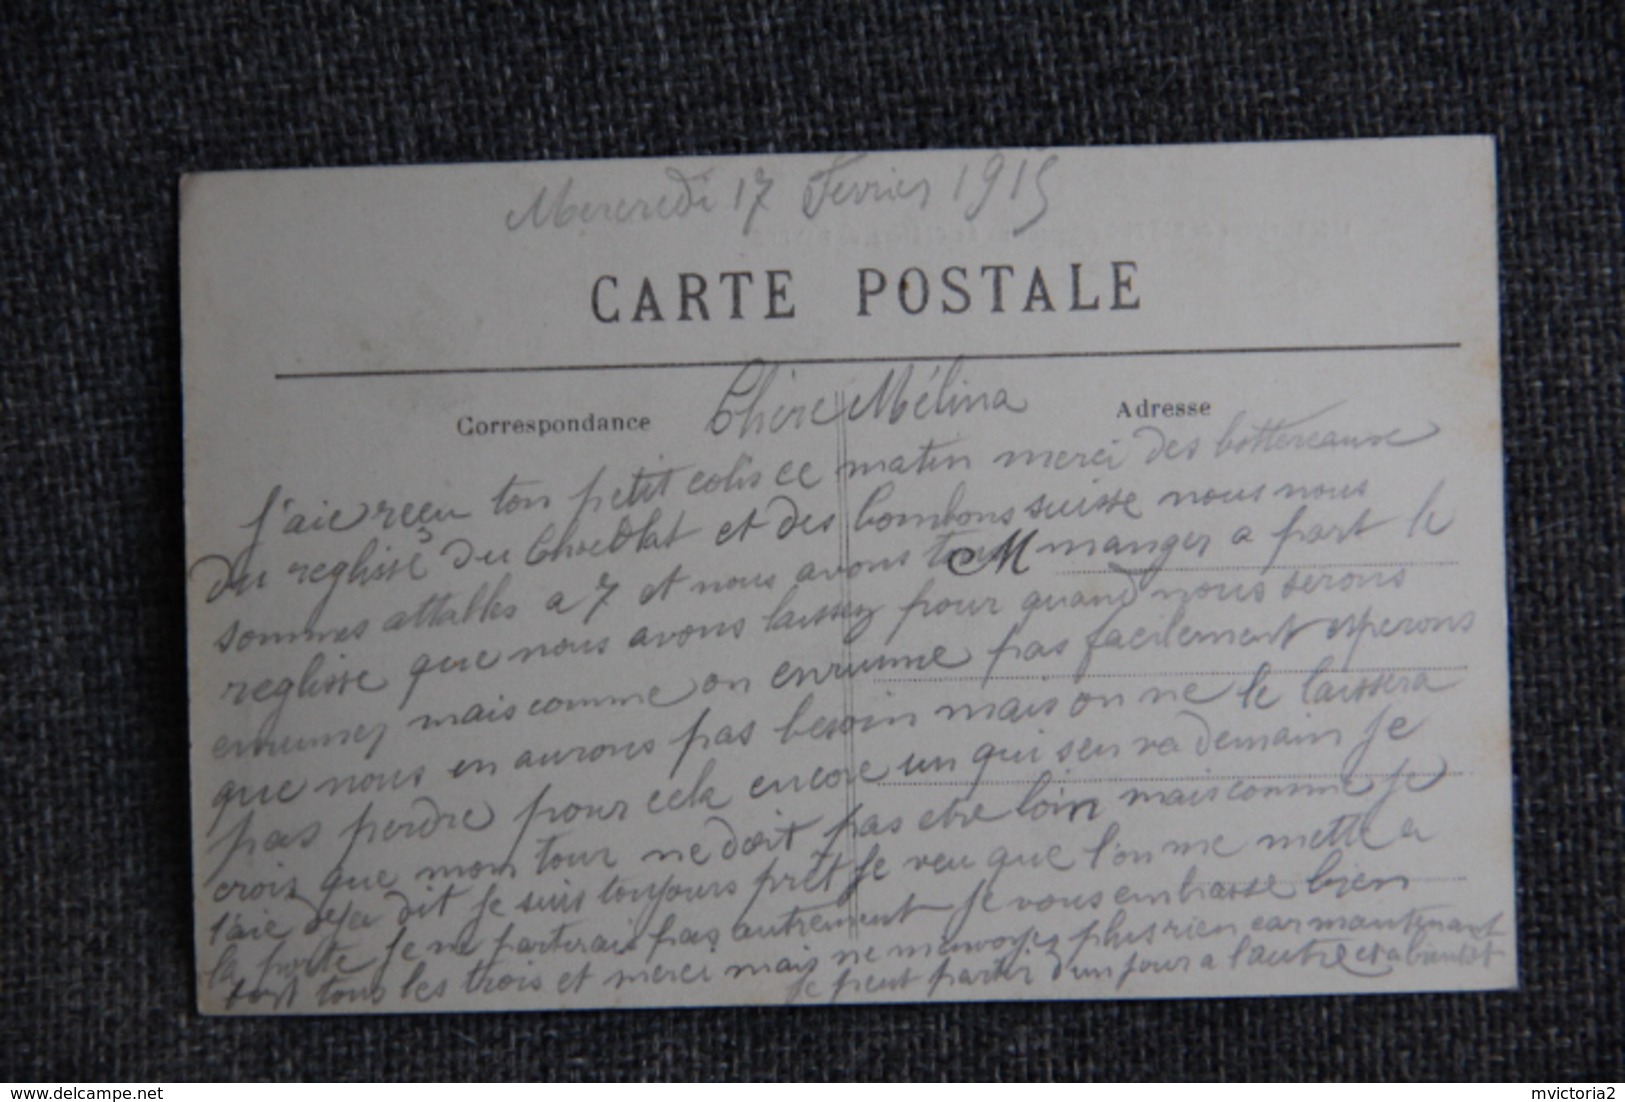 Mercredi 17 Fevrier 1915
CARTE POSTALE
Correspondance
Adresse
Chère Mélina
J'aie reçu ton petit colis ce matin merci des bottereaux
du reglisse du Chocolat et des bombons suisse nous nous
sommes attablés a 7 et nous avons tout manger a part le
reglisse que nous avons laissez pour quand nous serons
enrumez mais comme on enrume pas facilement esperons
que nous en aurons pas besoin mais on ne le laissera
pas perdre pour cela encore un qui sen va demain je
crois que mon tour ne doit pas etre loin mais comme je
l'aie deja dit je suis toujours prêt je veu que l'on me mette a
la porte je ne partirais pas autrement je vous embrasse bien
fort tous les trois et merci mais ne m'envoyez plus rien car maintenant
je peut partir d'un jour a l'autre et a bientôt
M
mvictoria2
delcampe.net